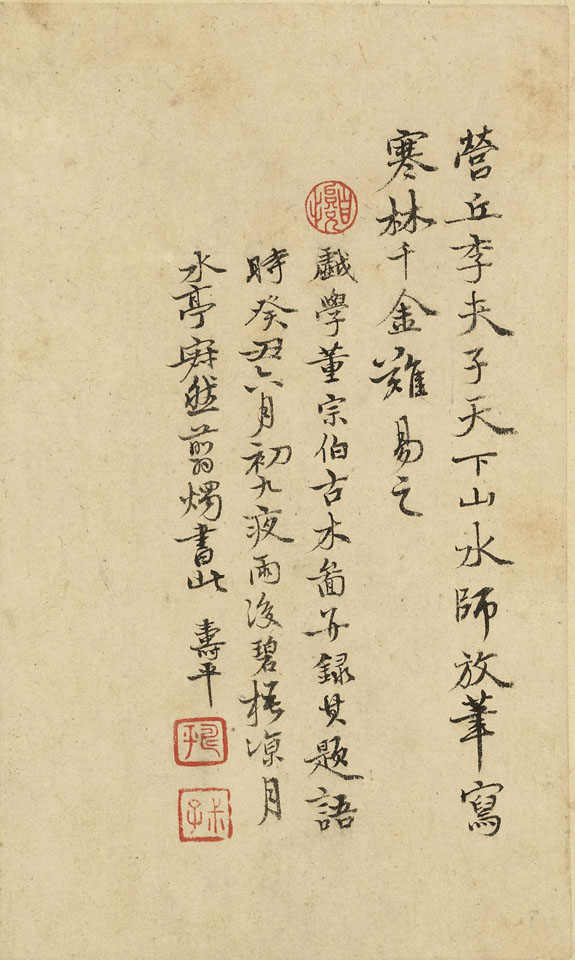 營丘李夫子天下山水師放筆寫
寒林千金難易之
戲學董宗伯古木圖并錄其題語
時癸丑六月初九夜雨後碧梧涼月
水亭寂然翦燭書此 壽平